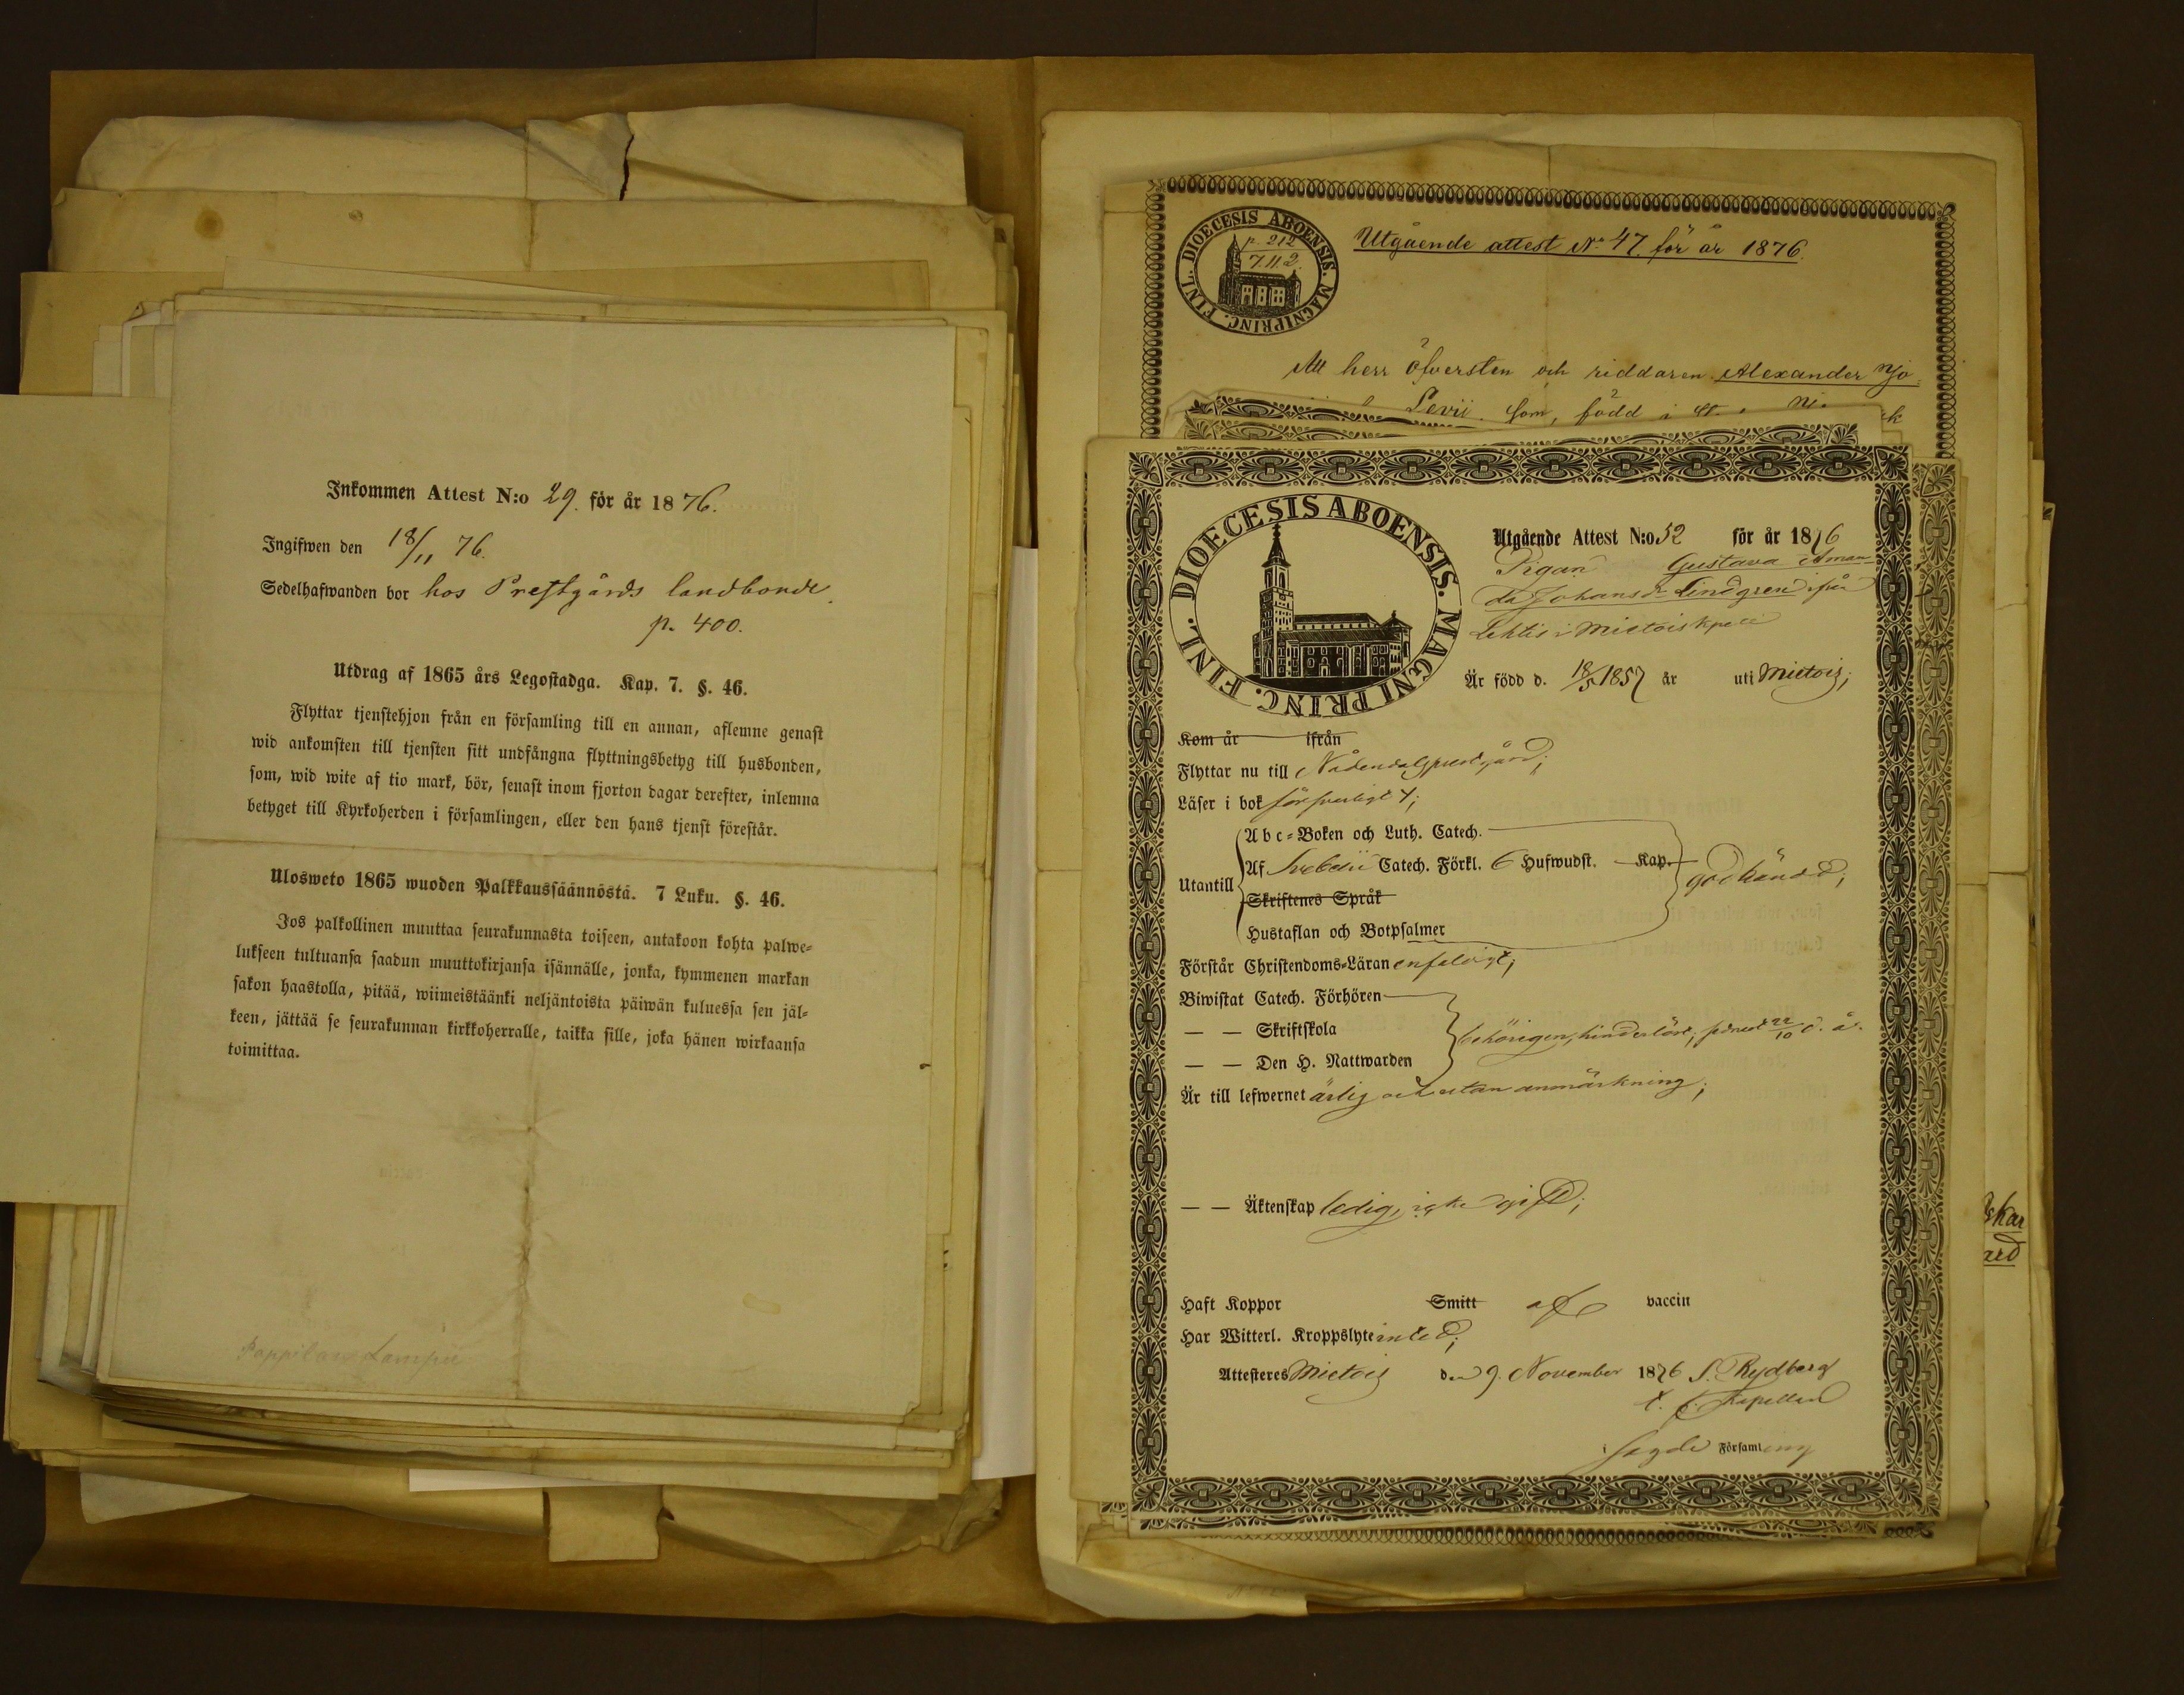 Inkommen Attest N:o 29. för år 1876.
Ingifwen den 18/11 76.
Sedelhafwanden bor hos Prestgårds landbonde
p. 400.
Utdrag af 1865 års Legostadga. Kap. 7. §. 46.
Flyttar tjenstehjon från en församling till en annan, aflemne genast
wid ankomsten till tjensten sitt undfångna flyttningsbetyg till husbonden,
som, wid wite af tio mark, bör, senast inom fjorton dagar derefter, inlemna
betyget till Kyrkoherden i församlingen, eller den hans tjenst förestår.
Ulosweto 1865 wuoden Palkkaussäännöstä. 7 Luku. §. 46.
Jos palkollinen muuttaa seurakunnasta toiseen, antakoon kohta palwe-
lukseen tultuansa saadun muuttokirjansa isännälle, jonka, kymmenen markan
sakon haastolla, pitää, wiimeistäänki neljäntoista päiwän kuluessa sen jäl-
keen, jättää se seurakunnan kirkkoherralle, taikka sille, joka hänen wirkaansa
toimittaa.
FINL. DIOECESIS ABOENSIS. MAGNIPRINC.
p. 212
7.11.2.
Utgående attest No 47 för år 1876.
Att herr öfversten och riddaren Alexander
som, född i
FINL. DIOECESIS ABOENSIS. MAGNI PRINC.
Utgående Attest N:o 52 för år 1876
Pigan Gustava Aman-
da Johansdr Lindgren ifrån
Lehtis i Mietois kpell
Är född d. 18/5 1857 år uti Mietois;
Kom år ifrån
Flyttar nu till Nådendals prestgård;
Läser i bok försvarligt;
Utantill
Abc-Boken och Luth. Catech.
Af Svebelii Catech. Förkl. 6 Hufwudst. Kap.
Skriftenes Språk
Hustaflan och Botpsalmer
godkändt;
Förstår Christendoms-Läran enfaldigt;
Biwistat Catech. Förhören
— — Skriftskola
— — Den H. Nattwarden
behörigen, hinderlöst, senast 22/10 d. å.
Är till lefwernet ärlig och utan anmärkning;
— — Äktenskap ledig, icke gift;
Haft Koppor Smitt af vaccin
Har Witterl. Kroppslyte intet;
Attesteres Mietois den 9. November 1876 S. Rydberg
Kapellan
Församling